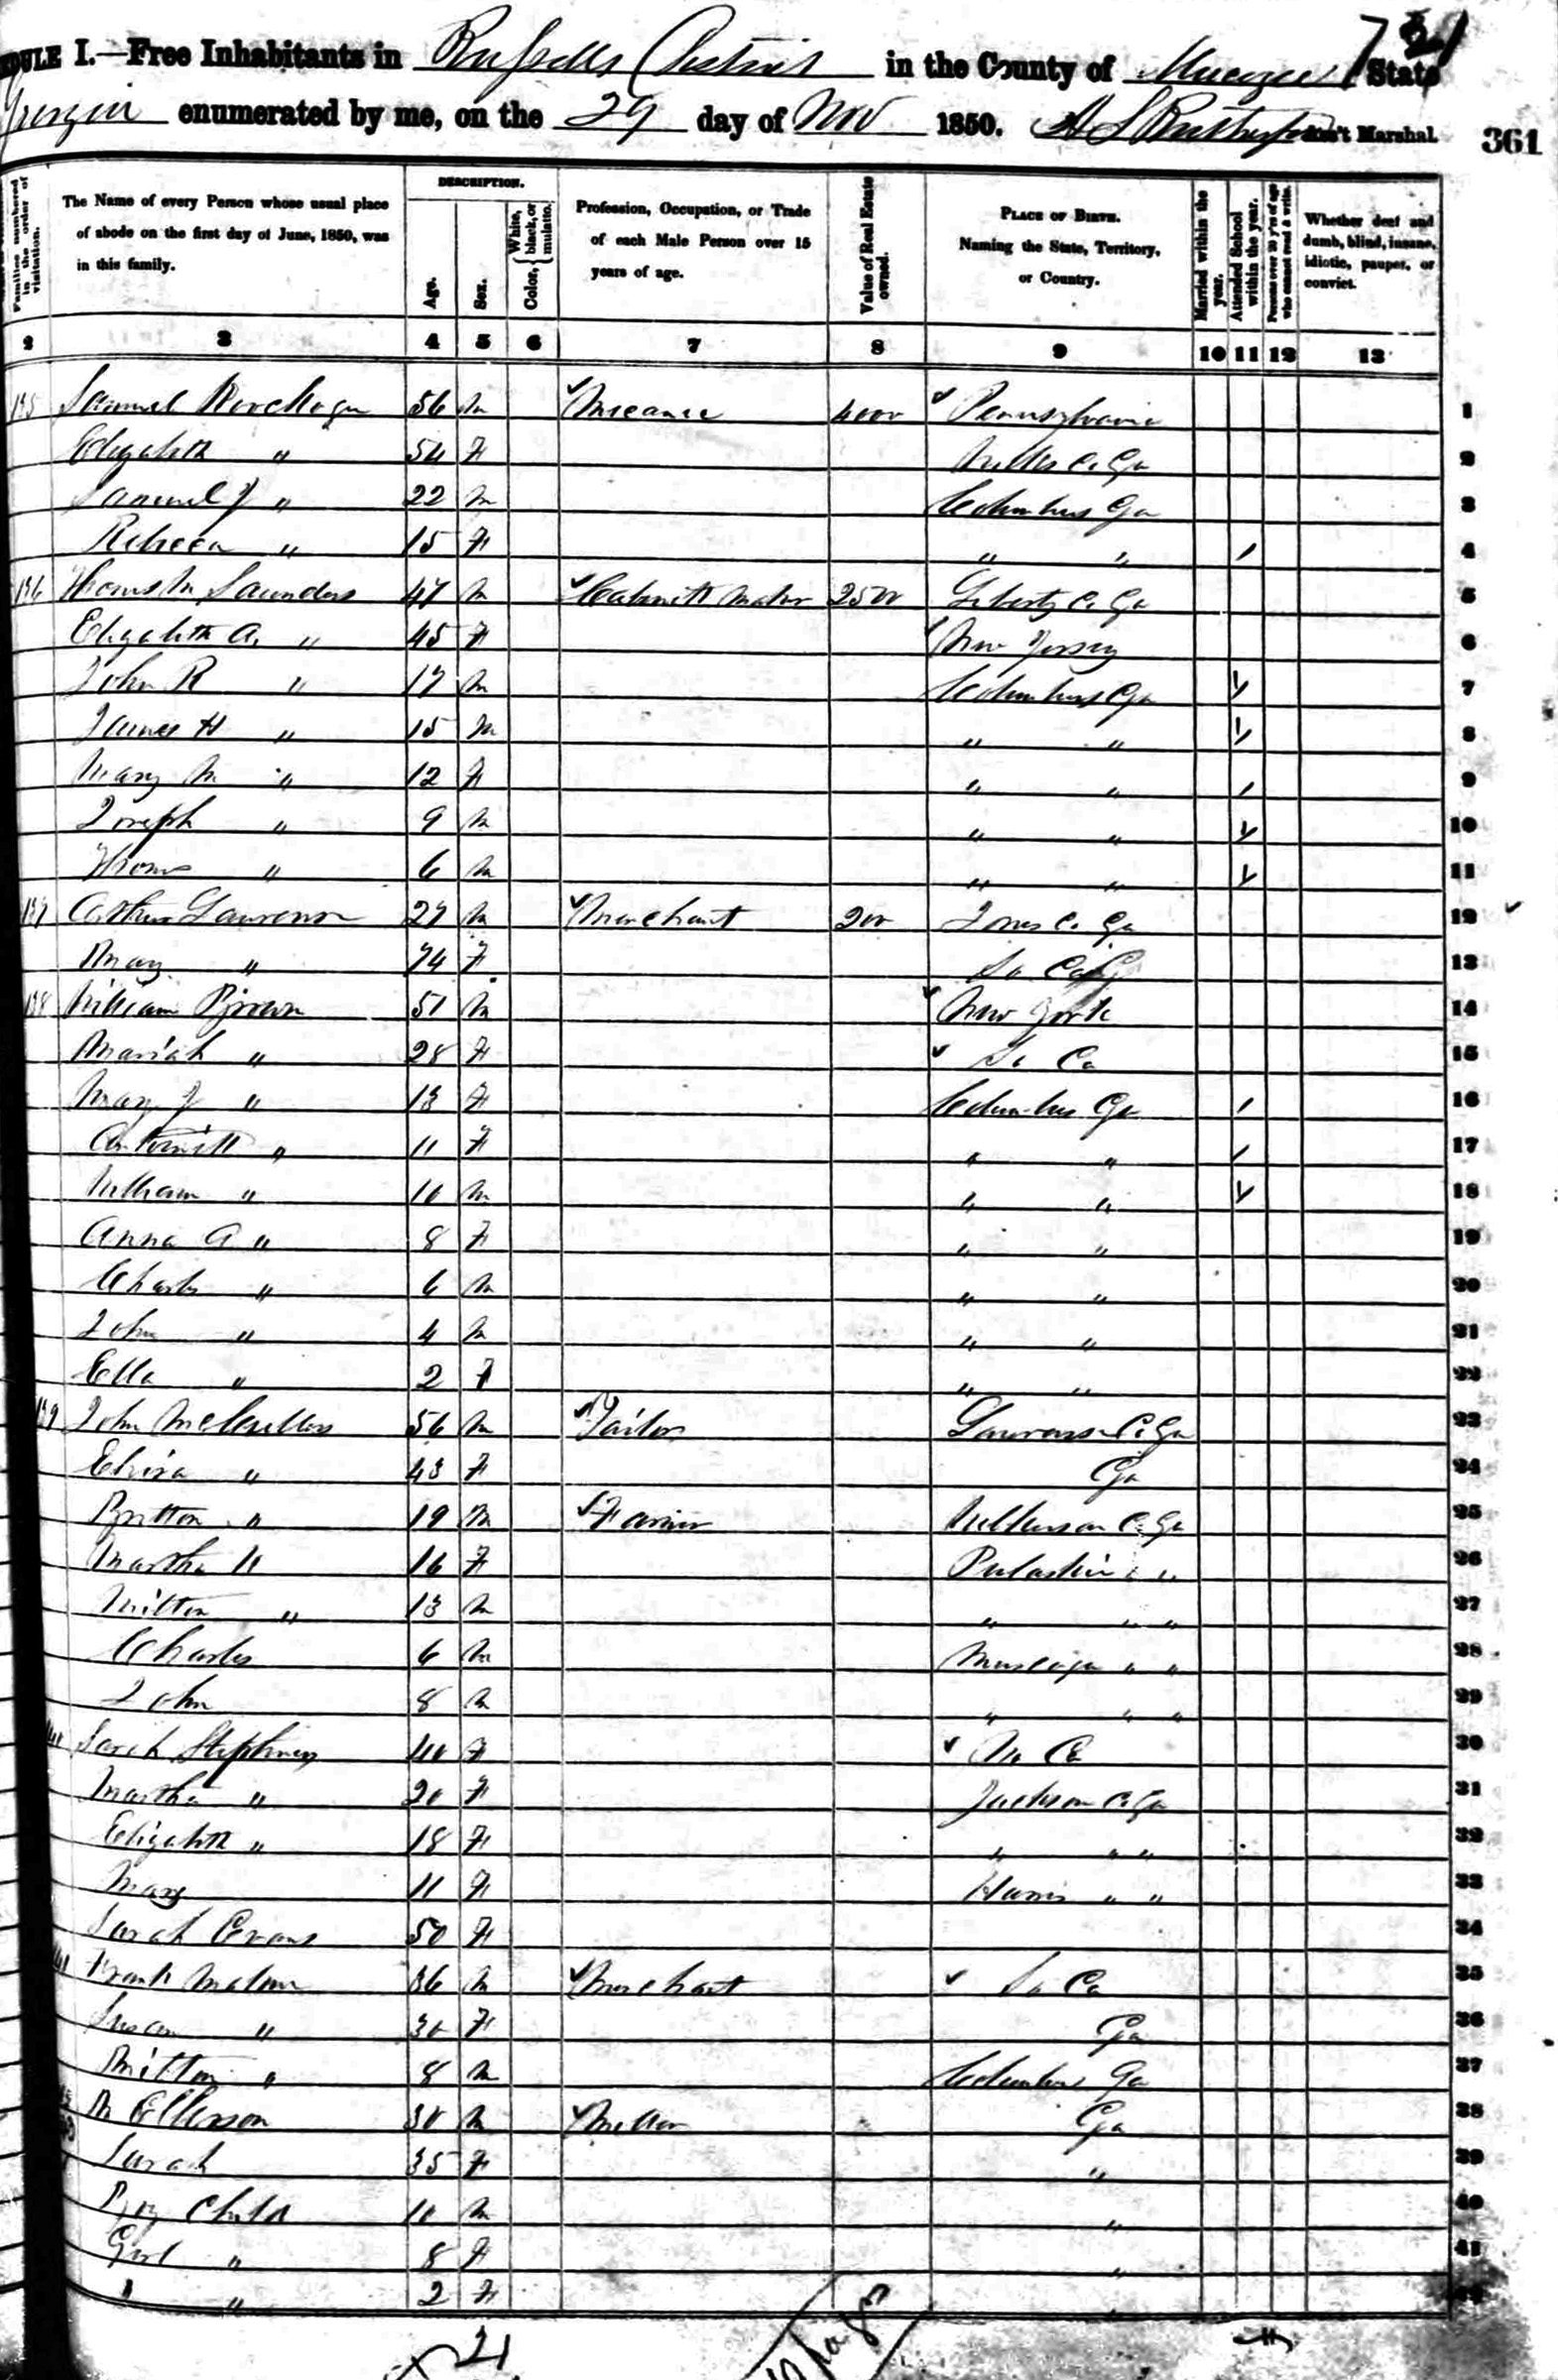 DULE I.—Free Inhabitants in Russells District in the County of Muscogee State 731
Georgia enumerated by me, on the 29 day of Nov 1850. A S Rutherford Ass't Marshal. 361
Families numbered in the order of visitation.
The Name of every Person whose usual place of abode on the first day of June, 1850, was in this family.
DESCRIPTION.
Age.
Sex.
Color, { White, black, or mulatto.
Profession, Occupation, or Trade of each Male Person over 15 years of age.
Value of Real Estate owned.
PLACE OF BIRTH. Naming the State, Territory, or Country.
Married within the year.
Attended School within the year.
Persons over 20 y'rs of age who cannot read & write.
Whether deaf and dumb, blind, insane, idiotic, pauper, or convict.
2 3 4 5 6 7 8 9 10 11 12 13
135 Samuel 56 m Mecanic 4000 Pennsylvania 1
Elizabeth " 54 F Co. Ga 2
Samuel J " 22 m Columbus Ga 3
Rebecca " 15 F " " / 4
136 Thomas M Saunders 47 m Cabinett Maker 2500 Liberty C. Ga 5
Elizabeth A. " 45 F New Jersey 6
John R " 17 m Columbus Ga 7
James H " 15 m " " 8
Mary M " 12 F " " / 9
Joseph " 9 m " " 10
Thoms " 6 m " " 11
137 Arthur Lawrence 27 m Merchant 200 Jones C. Ga 12
Mary " 74 F So Ca 13
138 William Brown 51 m New York 14
Mariah " 28 F So Ca 15
Mary J " 13 F Columbus Ga / 16
Antoinett " 11 F " " / 17
William " 10 m " " 18
Anna A " 8 F " " 19
Charles " 6 m " " 20
John " 4 m " " 21
Ella " 2 F " " 22
139 John McCullers 56 m Tailor Laurens C. Ga 23
Eliza " 43 F Ga 24
Britton " 19 m Farmer Wilkerson C. Ga 25
Martha " 16 F Pulaskie " " 26
Milton " 13 m " " " 27
Charles 6 m Muscogee " " 28
John 8 m " " " 29
Sarah Stephens 40 F No Ca 30
Martha " 20 F Jackson C. Ga 31
Elizabeth " 18 F " " " 32
Mary 11 F Harris " " 33
Sarah Evans 50 F 34
Frank Malone 36 m Merchant So Ca 35
Susan " 30 F Ga 36
Milton " 8 m Columbus Ga 37
M Ellerson 30 m Miller Ga 38
Sarah 35 F " 39
Boy Child 10 m " 40
Girl " 8 F " 41
" " 2 F
21